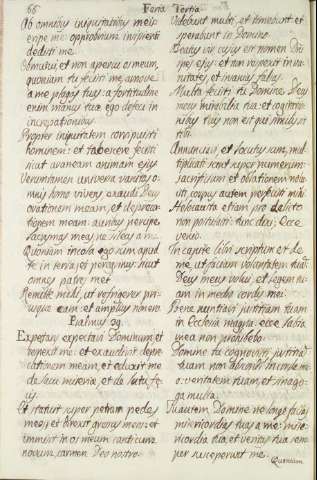 66 Feria Tertia
Ab omnibus iniquitatibus meis
eripe me: opprobrium insipienti
dedisti me.
Obmutui, et non aperui os meum,
quoniam tu fecisti: amove
a me plagas tuas. a fortitudine
enim manus tuæ ego defeci in
increpationibus
Propter iniquitatem corripuisti
hominem: et tabescere fecisti
sicut araneam animam ejus
Verumtamen universa vanitas o-
mnis homo vivens exaudi Deus
orationem meam, et depreca-
tionem meam: auribus percipe
lacrymas meas ne sileas a me.
Quoniam incola ego sum apud
te in terra, et peregrinus: sicut
omnes patres mei
Remitte mihi, ut refrigerer pri-
usquam eam: et amplius non ero
Psalmus 39.
Expectans expectavi Dominum, et
intendit mihi: et exaudivit depre-
cationem meam, et eduxit me
de lacu miseriæ, et de luto fæ-
cis
Et statuit super petram pedes
meos; et direxit gressus meos: et
immisit in os meum canticum
novum, carmen Deo nostro.
Videbunt multi, et timebunt: et
sperabunt in Domino.
Beatus vir cujus est nomen Dni
spes ejus; et non respexit in va-
nitates, et insanias falsas
Multa fecisti tu Domine Deus
meus mirabilia tua: et cogitatio-
nibus tuis non est quis similis sit
tibi.
Annunciavi, et locutus sum, mul-
tiplicati sunt super numerum:
sacrificium et oblationem nolu-
isti, corpus autem perfecisti mihi.
Holocausta etiam pro delicto
non postulasti: tunc dixi; Ecce
venio.
In capite libri scriptum est de
me, ut faciam voluntatem tuã:
Deus meus volui, et legem tu-
am in medio cordis mei.
Bene nuntiavi justitiam tuam
in Ecclesia magna, ecce labia
mea non prohibebo
Domine tu cognovisti, justitiã
tuam non abscondi in corde me-
o: veritatem tuam, et sinago-
ga multa.
Tu autem Domine ne longe facias
misericordias tuas a me: mise-
ricordia tua, et veritas tua sem-
per susceperunt me.
Quoniam